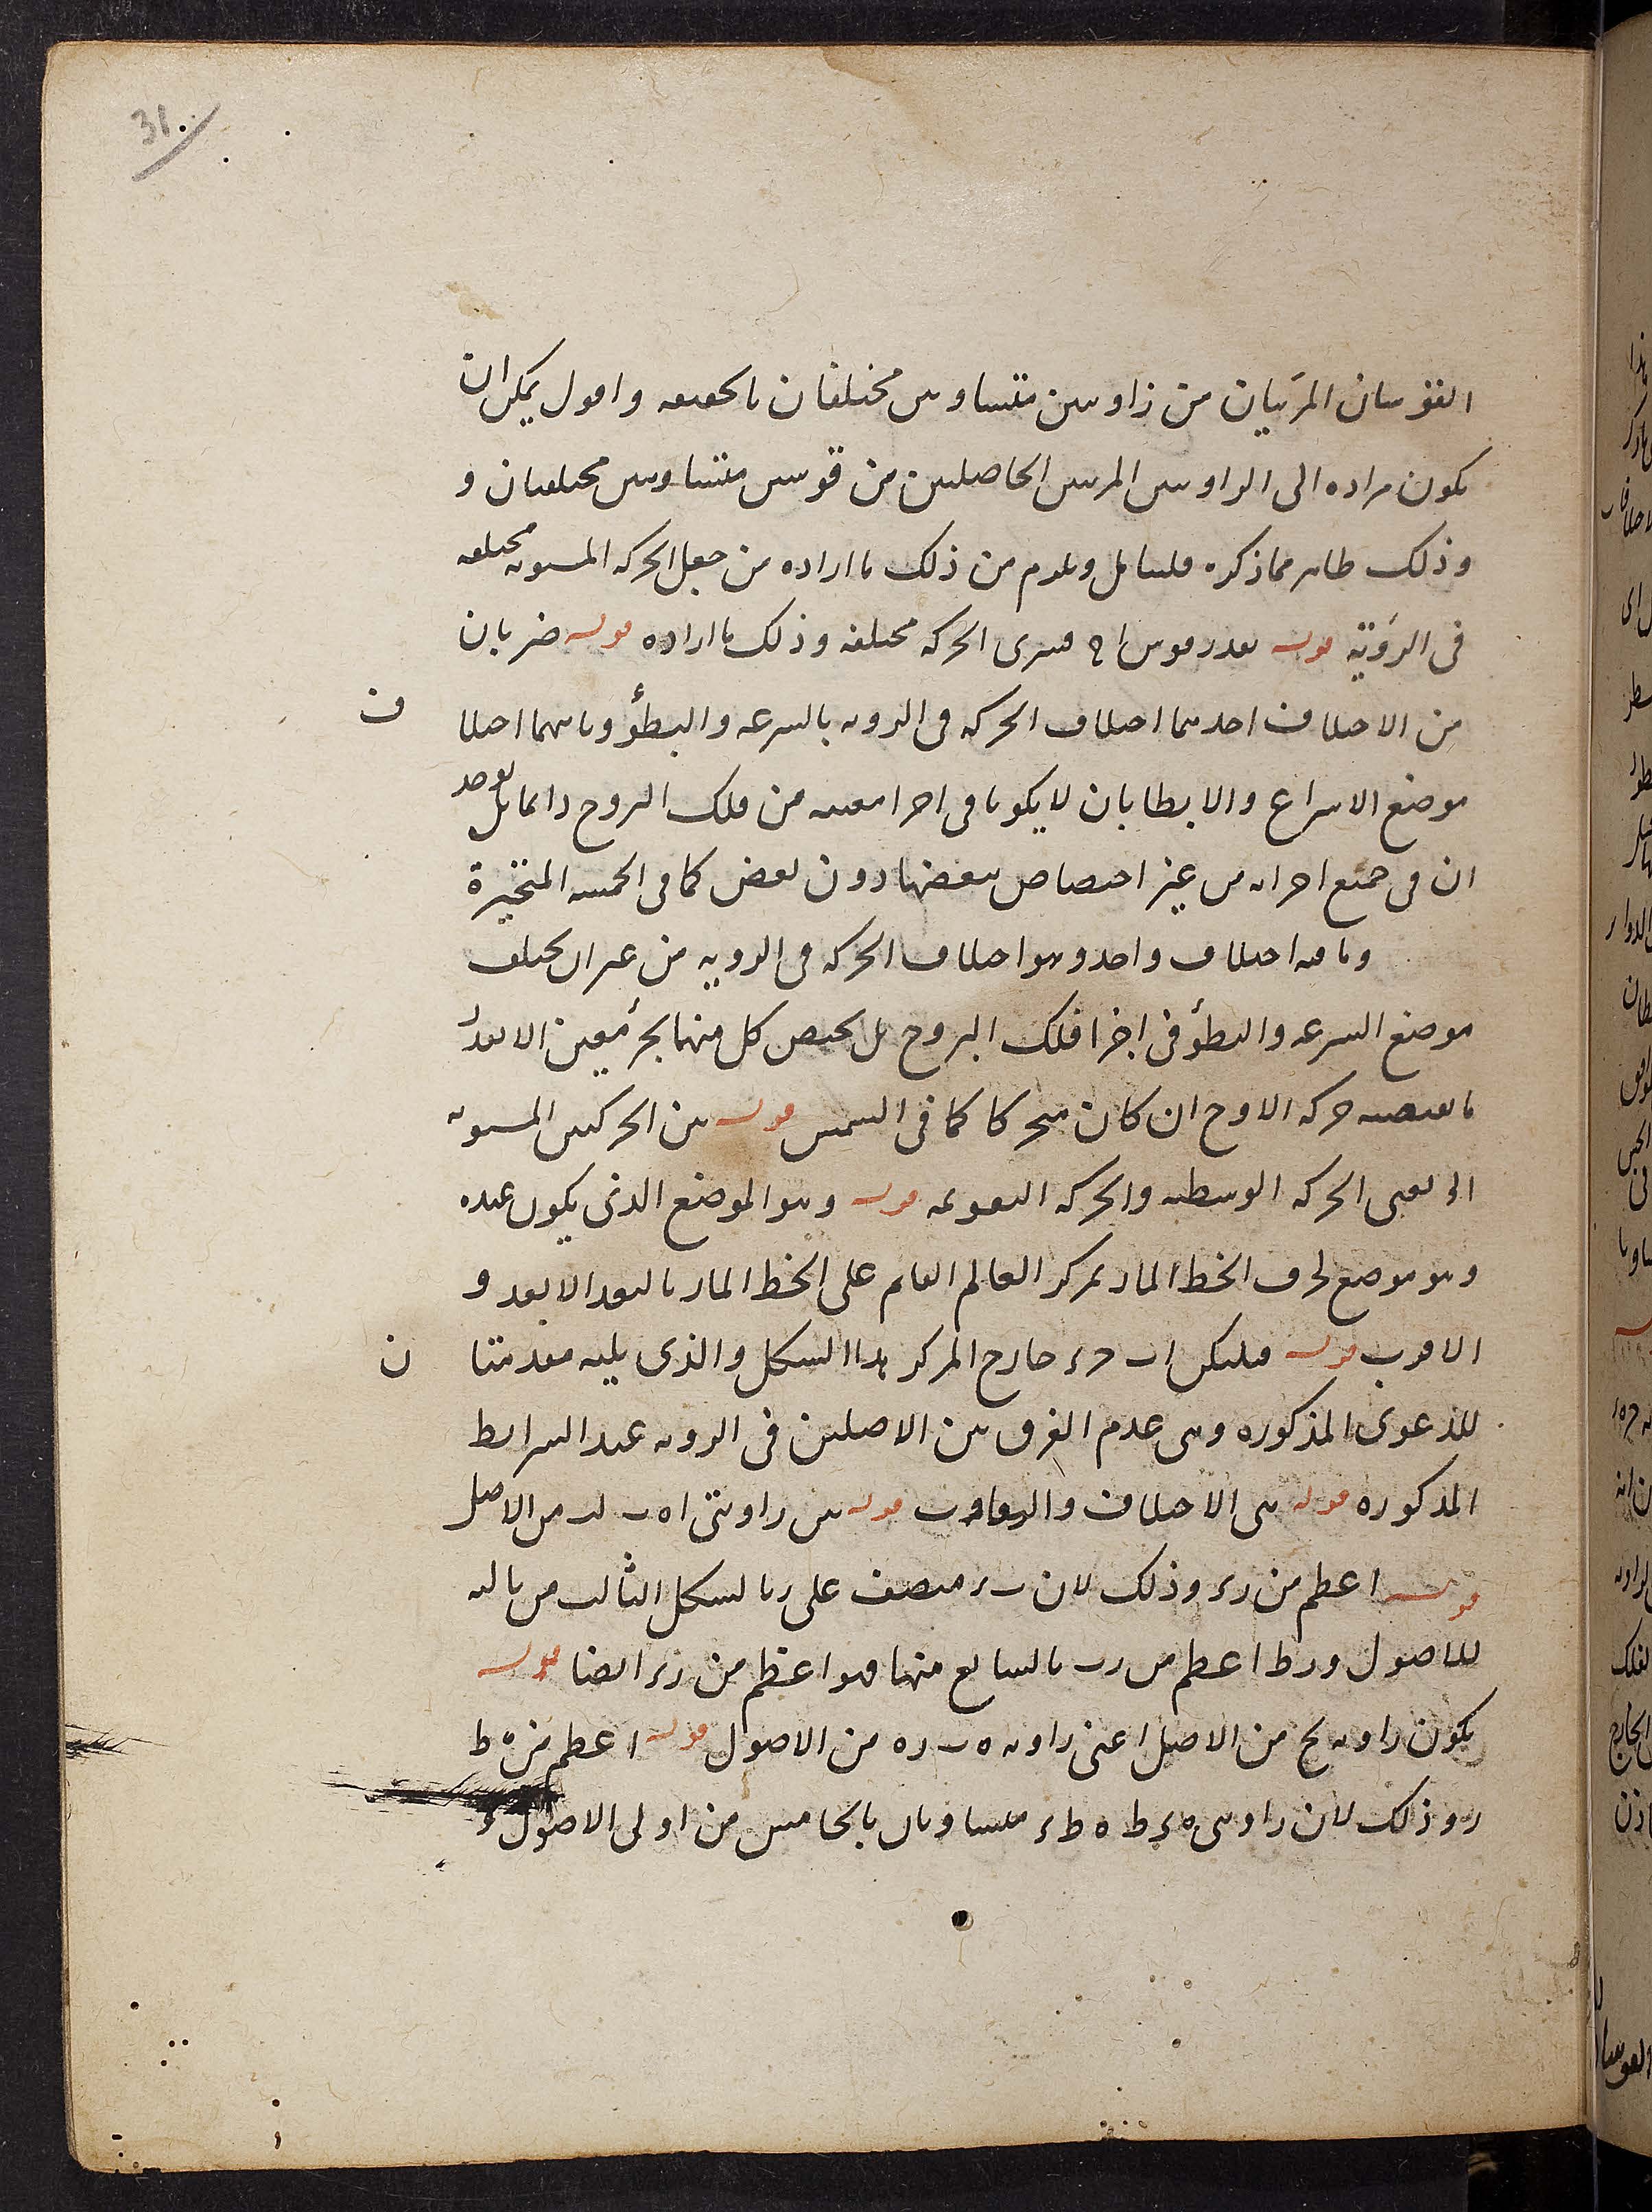 31
القوسان المرئيان من زاويتين متساويين مختلفتان بالحقيقه واقول يمكن ان
يكون مراده الى الزاويتين المرئيتين الحاصلتين من قوسين متساويين مختلفتان و
وذلك ظاهر مما ذكره فليتامل ويلزم من ذلك ما اراده من جعل الحركه المستويه مختلفه
فى الرؤية قوله بقدر قوس ا ح فيرى الحركه مختلفه وذلك ما اراده قوله ضربان
من الاختلاف احدهما اختلاف الحركه فى الرويه بالسرعه والبطؤ وثانيهما اختلا ف
موضع الاسراع والابطا بان لا يكونا فى اجزا معينه من فلك البروج دائما بل يوجد
ان فى جميع اجزائه من غير اختصاص ببعضها دون بعض كما فى الخمسه المتحيرة
وما فيه اختلاف واحد وهو اختلاف الحركه فى الرويه من غير ان يختلف
موضع السرعه والبطؤ فى اجزا فلك البروج بل يختص كل منهما بجزء معين الا بقدر
ما يقتضيه حركه الاوج ان كان متحركا كما فى الشمس قوله بين الحركتين المستويه
الخ يعنى الحركه الوسطيه والحركه التقويميه قوله وهو الموضع الذى يكون عنده
وهو موضع طرف الخط المار بمركز العالم القايم على الخط المار بالبعد الابعد و
الاقرب قوله فليكن ا ب ح د خارج المركز هذا الشكل والذى يليه مقدمتا ن
للدعوى المذكوره وهى عدم الفرق بين الاصلين فى الرويه عند الشرايط
المذكوره قوله هى الاختلاف والتفاوت قوله بين زاويتى ا ه ب من الاصل
قوله اعظم من ر د وذلك لان ب د منصف على ر بالشكل الثالث من ثالثه
للاصول و ر ط اعظم من ر ب بالسابع منها فهو اعظم من ر د ايضا قوله
يكون زاويه يح من الاصل اعنى زاويه ه ب ر ه من الاصول قوله اعظم من ه ط
ر وذلك لان زاويتى ه د ط ه ط د متساويتان بالخامس من اولى الاصول و